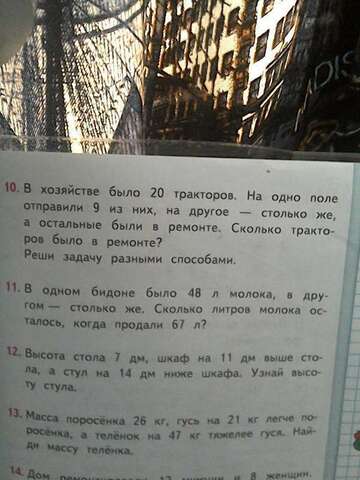 10. В хозяйстве было 20 тракторов. На одно поле
отправили 9 из них, на другое — столько же,
а остальные были в ремонте. Сколько тракто-
ров было в ремонте?
Реши задачу разными способами.
11. В одном бидоне было 48 л молока, в дру-
гом — столько же. Сколько литров молока ос-
талось, когда продали 67 л?
12. Высота стола 7 дм, шкаф на 11 дм выше сто-
ла, а стул на 14 дм ниже шкафа. Узнай высо-
ту стула.
13. Масса поросёнка 26 кг, гусь на 21 кг легче по-
росёнка, а телёнок на 47 кг тяжелее гуся. Най-
ди массу телёнка.
14. Дом 8 женщин.